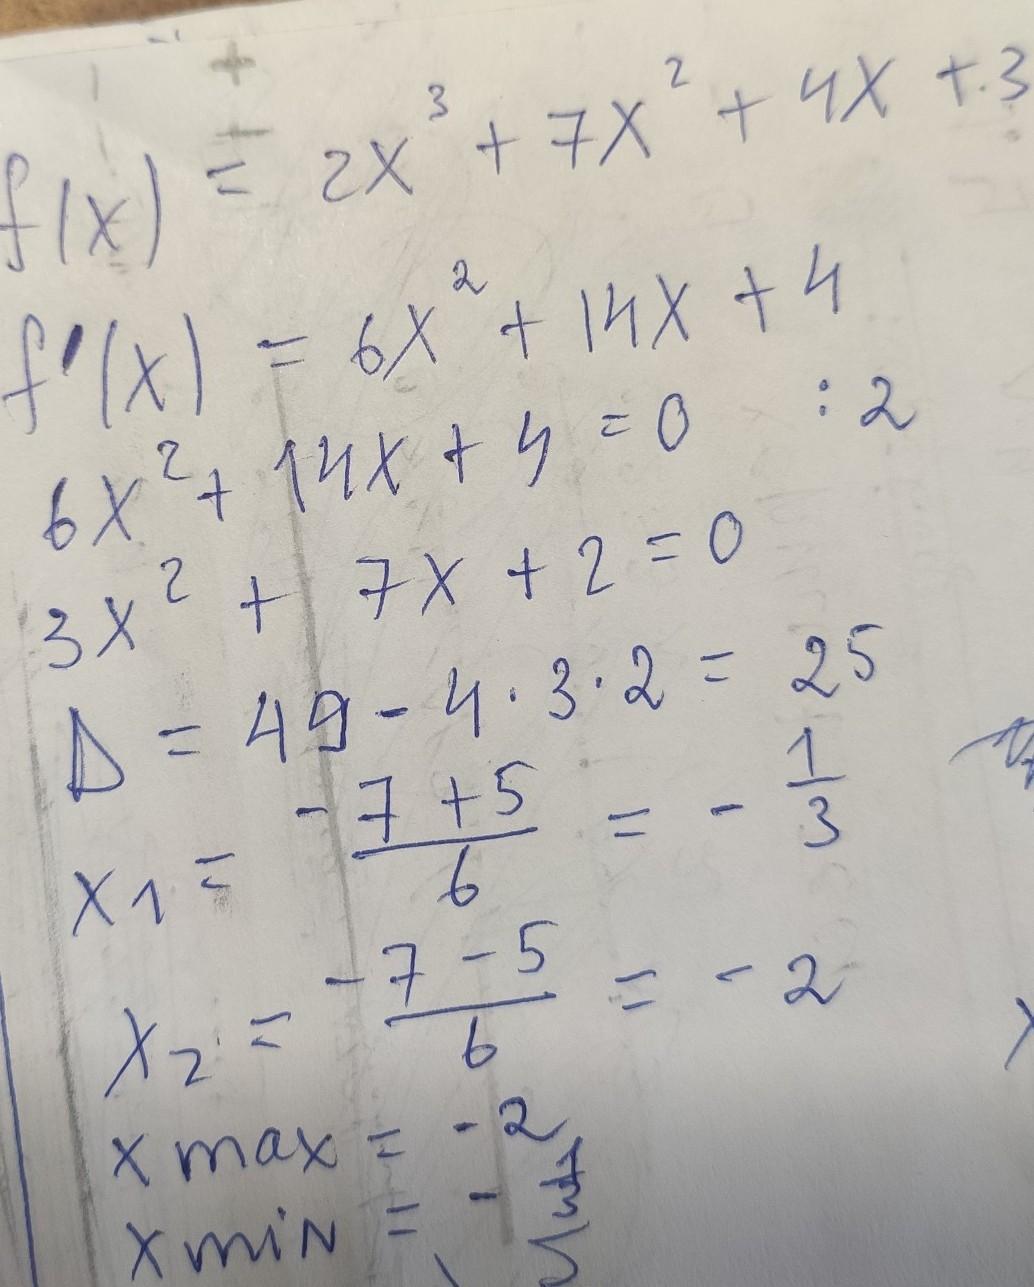 f(x) = 2x³ + 7x² + 4x + 3
f'(x) = 6x² + 14x + 4
6x² + 14x + 4 = 0 :2
3x² + 7x + 2 = 0
Δ = 49 - 4·3·2 = 25
x1 = (-7+5)/6 = -1/3
x2 = (-7-5)/6 = -2
x max = -2
x min = -